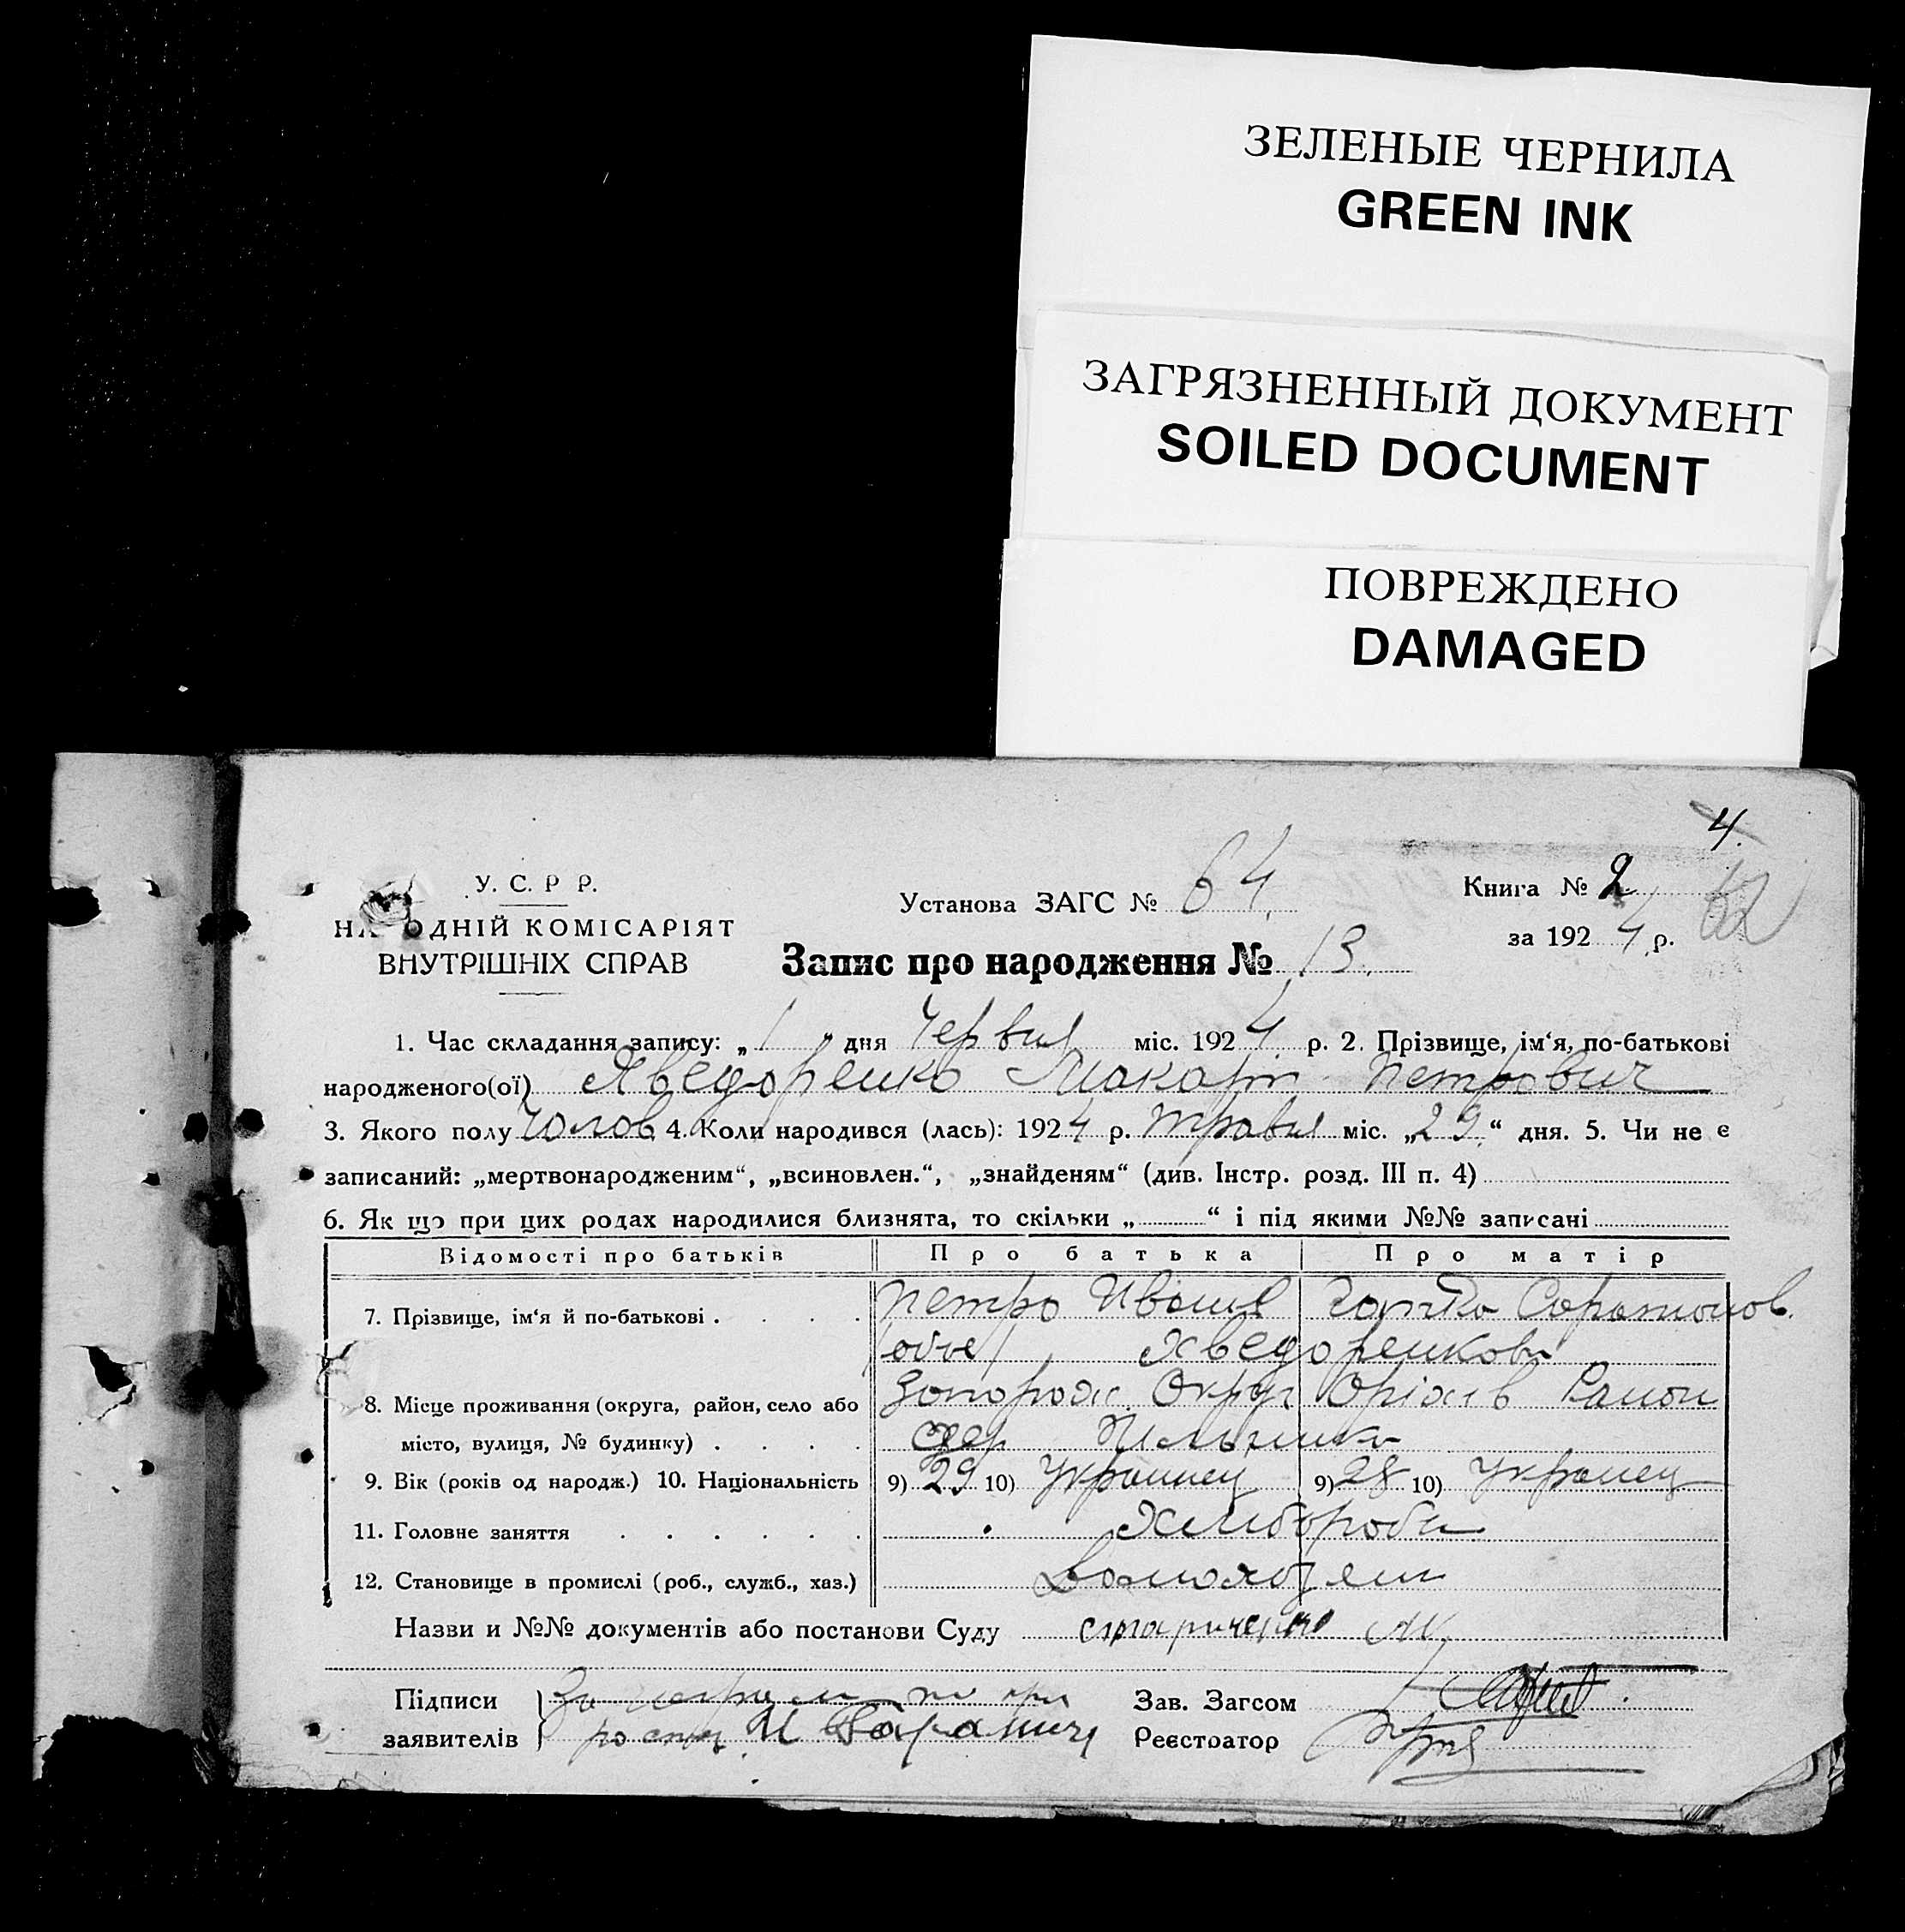 ЗЕЛЕНЫЕ ЧЕРНИЛА
GREEN INK
ЗАГРЯЗНЕННЫЙ ДОКУМЕНТ
SOILED DOCUMENT
ПОВРЕЖДЕНО
DAMAGED
4.
У. С. Р Р.
НА ОДНІЙ КОМІСАРІЯТ
ВНУТРІШНІХ СПРАВ
Установа ЗАГС № 64.
Книга № 2
за 1924 р.
62
Запис про народження № 13.
1. Час складання запису: „1" дня Червня міс. 1924 р. 2. Прізвище, ім'я, по-батькові
народженого(ої) Хведоренко Макарт Петрович
3. Якого полу чолов 4. Коли народився (лась): 1924 р. травня міс. „29" дня. 5. Чи не є
записаний: „мертвонародженим", „всиновлен.", „знайденям" (див. Інстр. розд. III п. 4)
6. Як що при цих родах народилися близнята, то скільки „ " і під якими №№ записані
Відомості про батьків Про батька Про матір
7. Прізвище, ім'я й по-батькові Петро Иванов
обое Хведоренкови
8. Місце проживання (округа, район, село або Запорож. Округ Оріхів Район
місто, вулиця, № будинку)
9. Вік (років од народж.) 10. Національність 9) 29 10) Украинец 9) 28 10) Украинец
11. Головне заняття Хлибороби
12. Становище в промислі (роб., служб., хаз.)
Назви и №№ документів або постанови Суду
Підписи
заявителів
Зав. Загсом
Реєстратор